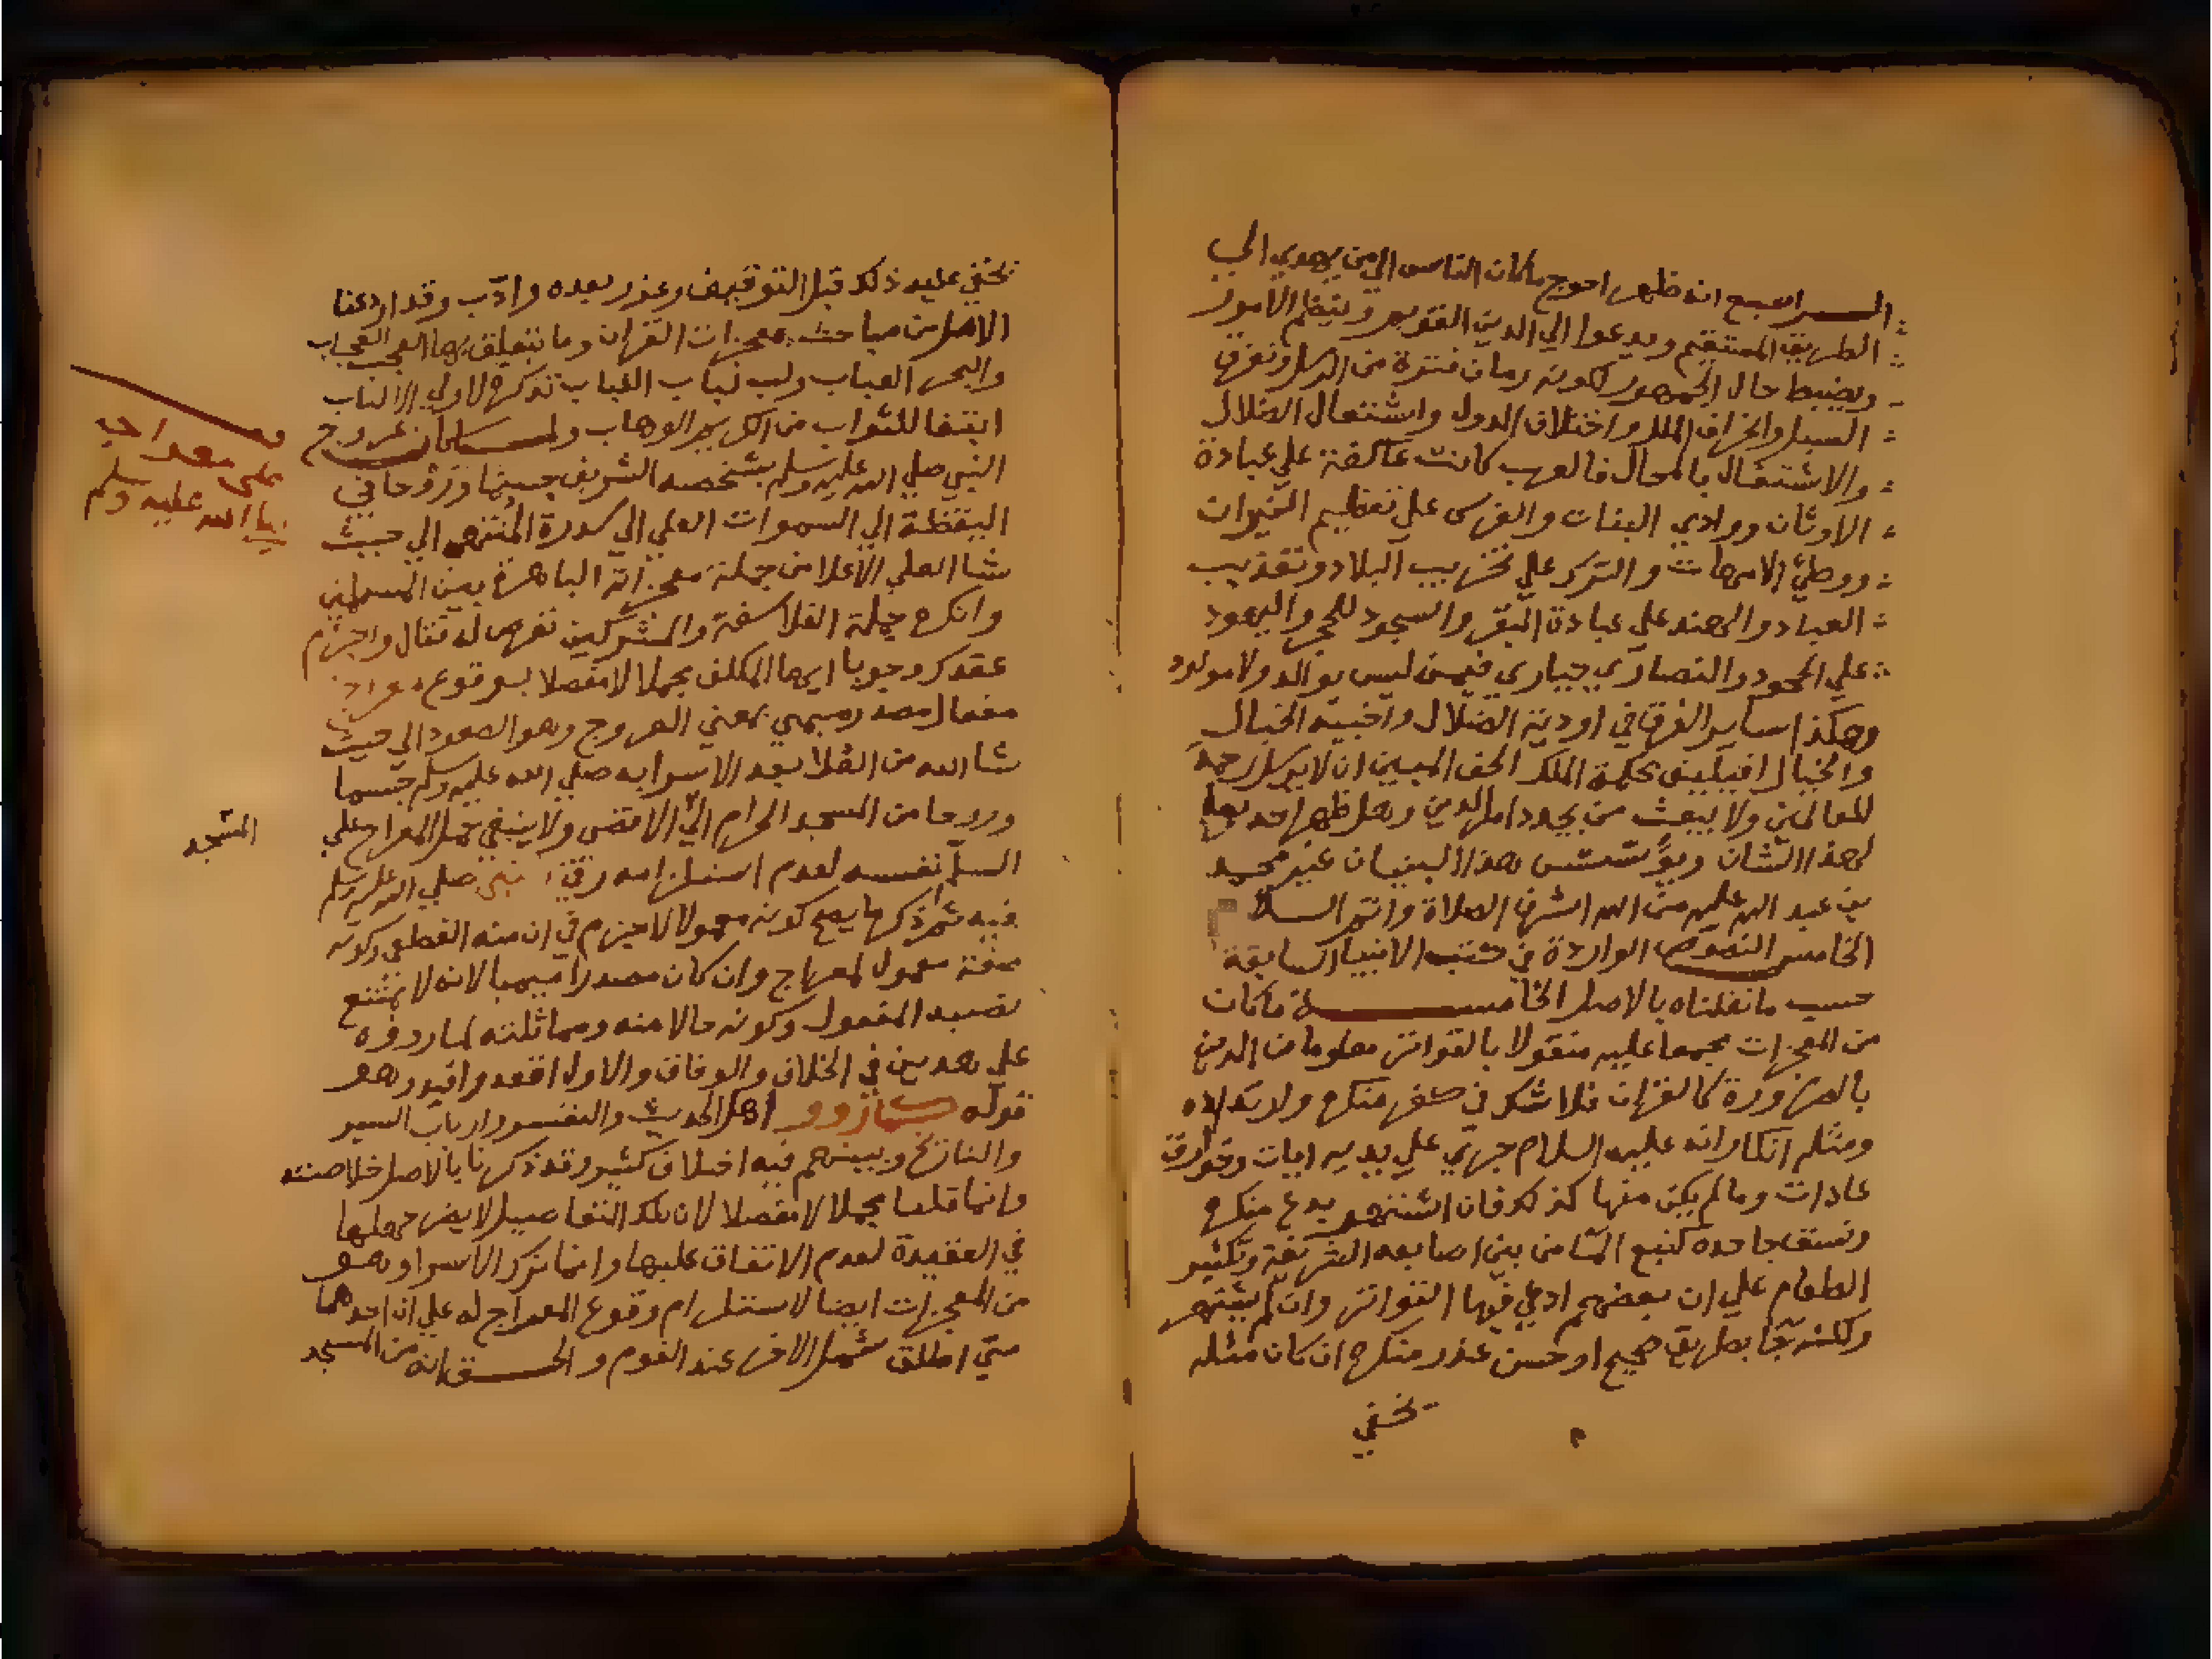 الرابع انه ظهر احوج ماكان الناس الي من يهدي الي
الطريق المستقيم ويدعوا الي الدين القويم وينظم الامور
ويضبط حال الجمهور لكونه زمان فترة من الرسل وتفرق
السبل وانحراف الملل واختلاف الدول واشتعال الضلال
والاشتغال بالمحال فالعرب كانت عاكفة علي عبادة
الاوثان ووادي البنات والفرس علي تعظيم النيران
ووطئ الامهات والترك علي تخريب البلاد وتعذيب
العباد والهند علي عبادة البقر والسجود للحجر واليهود
علي الجحود والنصاري حياري فيمن ليس بوالد ولا مولود
وهكذا ساير الفرق في اودية الضلال واخبية الخيال
والخبال افيليق بحكمة الملك الحق المبين ان لا يرسل رحمة
للعالمين ولا يبعث من يجدد امر الدين وهل ظهر احد يصلح
لهذا الشان ويؤسس هذا البنيان غير محمد
بن عبد الله عليه من الله اشرف الصلاة واتم السلام
الخامس النصوص الواردة في كتب الانبيا السابقة
حسب ما نقلناه بالاصل الخامسة ما كان
من المعجزات مجمعا عليه منقولا بالتواتر معلوما من الدين
بالضرورة كالقران فلا شك في كفر منكره
ومثله انكار انه عليه السلام جري علي يديه ايات وخوارق
عادات وما لم يكن منها كذلك فان اشتهر بدع منكره
وفسق جاحده كنبع الما من بين اصابعه الشريفة وتكثير
الطعام علي ان بعضهم ادعي فيها التواتر وان لم يشتهر
ولكنه جا بطريق صحيح او حسن عذر منكره ان كان مثله
يخفي
يخفي عليه ذلك قبل التوقيف وعزر بعده وادب وقد اودعنا
الاصل من مباحث معجزات القران وما يتعلق بها العجب العجاب
والبحر العباب ولب لباب اللباب تذكرة لاولي الالباب
ابتغا للثواب من الكريم الوهاب ولما كان عروج
النبي صلي الله عليه وسلم بشخصه الشريف جسما وروحا في
اليقظة الي السموات العلي الي سدرة المنتهي الي حيث
شا العلي الاعلا من جملة معجزاته الباهرة بين المسلمين
وانكره جملة الفلاسفة والمشركين تعرض له فقال واجزم
عقدك وجوبا ايها المكلف مجملا لا مفصلا بوقوع معراج
مفعال مصدر ميمي بمعني العروج وهو الصعود الي حيث
شا الله من العلا بعد الاسرا به صلي الله عليه وسلم جسما
وروحا من المسجد الحرام الي الاقصي ولا ينبغي حمل المعراج علي
السلم نفسه لعدم استلزامه رقي النبي صلي الله عليه وسلم
فيه ثم ذكر ما يصح كونه معمولا لاجزم في ان منه القطعي وكونه
صفة معمول لمعراج وان كان مصدرا ميميا لانه لا يمتنع
نصبه المفعول وكونه حالا منه ومماثلته لما رووه
علي بعد بين في الخلاف والوفاق والاول اقعد وافيد وهو
قوله كما رووا اهل الحديث والتفسير وارباب السير
والتاريخ وبينهم فيه اختلاف كثير وقد ذكرنا بالاصل خلاصته
وانما قلنا مجملا لا مفصلا لان تلك التفاصيل لا يضر جهلها
في العقيدة لعدم الاتفاق عليها وانما ترك الاسرا وهو
من المعجزات ايضا لاستلزام وقوع المعراج له علي ان احدهما
متي اطلق شمل الاخر عند القوم والحق انه من المسجد
علي معراجه
صلي الله عليه وسلم
المسجد